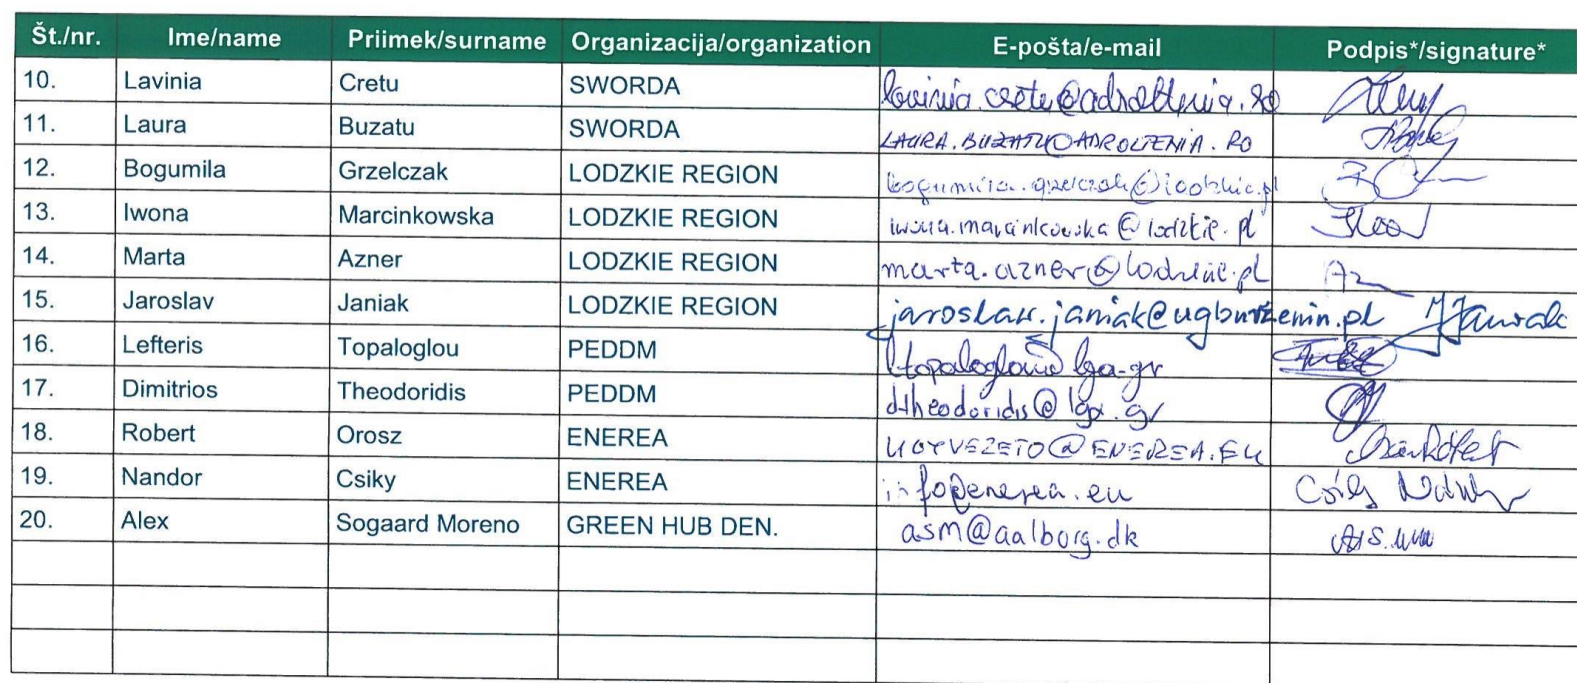 Št./nr. Ime/name Priimek/surname Organizacija/organization E-pošta/e-mail Podpis*/signature*
10. Lavinia Cretu SWORDA lavinia.cretu@adroltenia.ro
11. Laura Buzatu SWORDA LAURA.BUZATU@ADROLTENIA.RO
12. Bogumila Grzelczak LODZKIE REGION bogumila.grzelczak@lodzkie.pl
13. Iwona Marcinkowska LODZKIE REGION iwona.marcinkowska@lodzkie.pl
14. Marta Azner LODZKIE REGION marta.azner@lodzkie.pl
15. Jaroslav Janiak LODZKIE REGION jaroslaw.janiak@ugburzenin.pl
16. Lefteris Topaloglou PEDDM ltopaloglou@lga.gr
17. Dimitrios Theodoridis PEDDM dtheodoridis@lga.gr
18. Robert Orosz ENEREA UGYVEZETO@ENEREA.EU
19. Nandor Csiky ENEREA info@enerea.eu
20. Alex Sogaard Moreno GREEN HUB DEN. asm@aalborg.dk